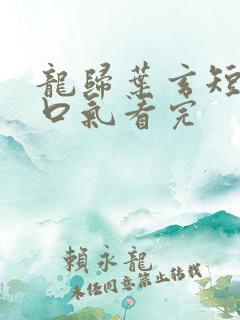 龍歸葉玄短
口氣看完
賴永龍
未經同意禁止轉載